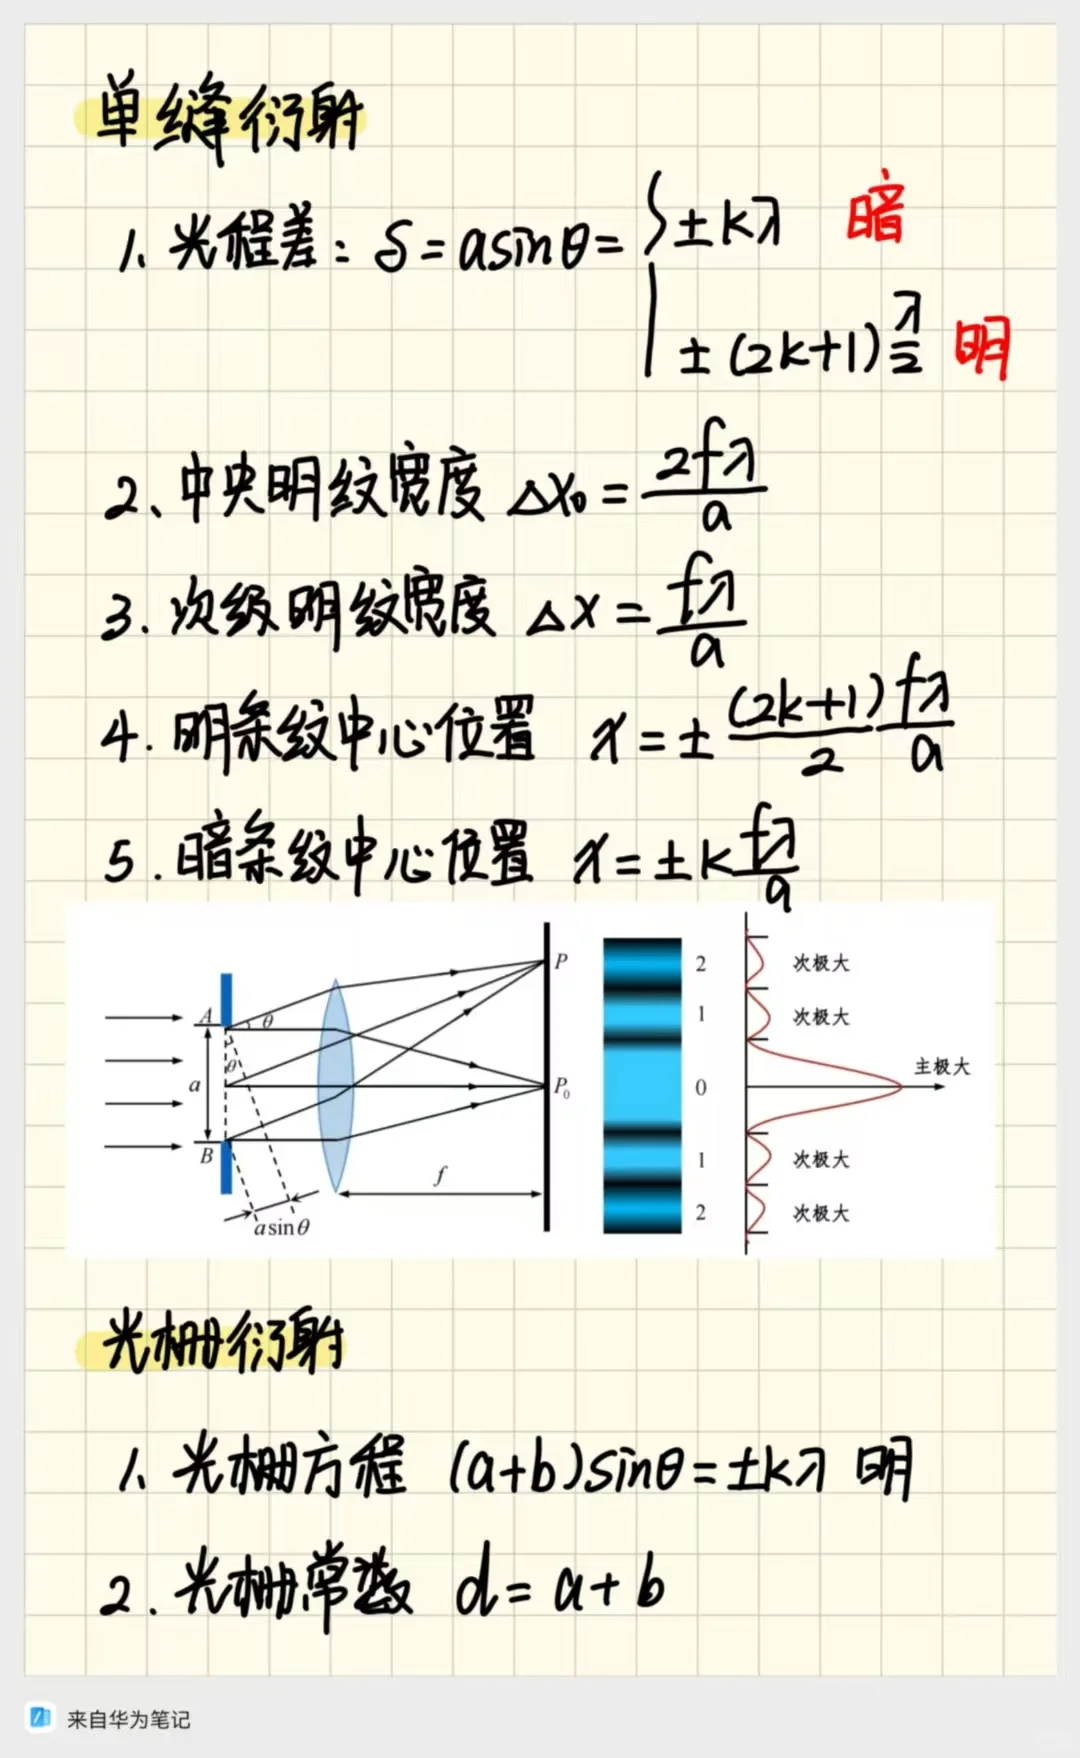 单缝衍射
1. 光程差: δ = a sinθ = { ± kλ 暗
± (2k+1) λ/2 明
2、中央明纹宽度 Δx₀ = 2fλ/a
3. 次级明纹宽度 Δx = fλ/a
4. 明条纹中心位置 x = ± (2k+1)/2 fλ/a
5. 暗条纹中心位置 x = ± k fλ/a
A θ
θ
a
B
a sinθ
f
P
P₀
2
1
0
1
2
次极大
次极大
主极大
次极大
次极大
光栅衍射
1、光栅方程 (a+b)sinθ = ±kλ 明
2. 光栅常数 d = a + b
来自华为笔记